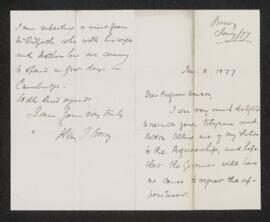 Jan. 3. 1877
I am very much delighted
to receive your telegram and
letter telling me of my election
to the Professorship, and hope
that the Governors will have
no cause to regret the ap-
pointment.
I am expecting a visit from
who with his wife
and mother in law are coming
to spend a few days in
Cambridge.
With kind regards,
I am Yours very truly